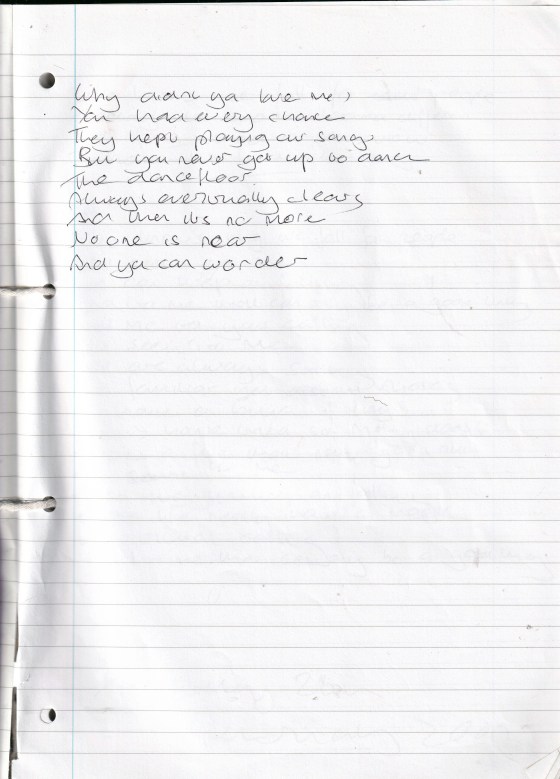 Why didn't ya love me,
You had every chance
They kept playing our songs
But you never got up to dance
The dancefloor.
Always eventually clears
And then it's no more
No one is near
And ya can wonder